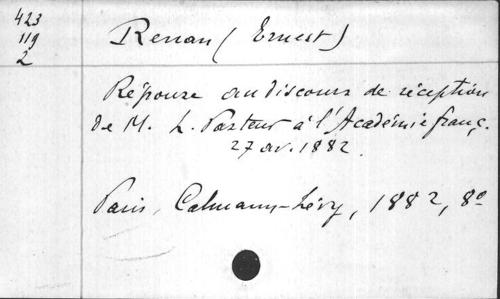 423
119
2
Renan (Ernest)
Réponse au discours de réception
de M. L. Pasteur à l'Académie franç.
27 av. 1882.
Paris, Calmann-Lévy, 1882, 8º